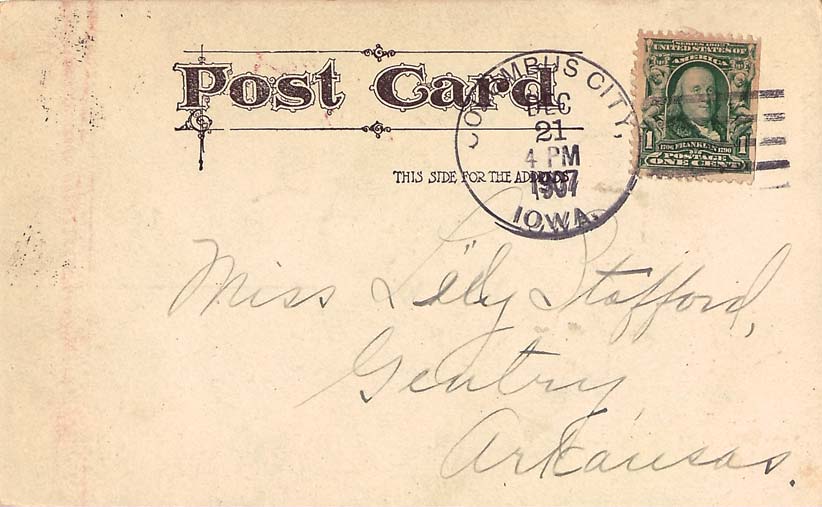 Post Card
THIS SIDE FOR THE ADDRESS
COLUMBUS CITY,
DEC
21
4 PM
1907
IOWA.
SERIES 1902
UNITED STATES OF
AMERICA
1 1706 FRANKLIN 1790 1
POSTAGE
ONE CENT
Miss Lily Stafford,
Gentry,
Arkansas.